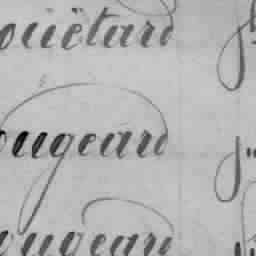 ociétard
ougeard
ougeard